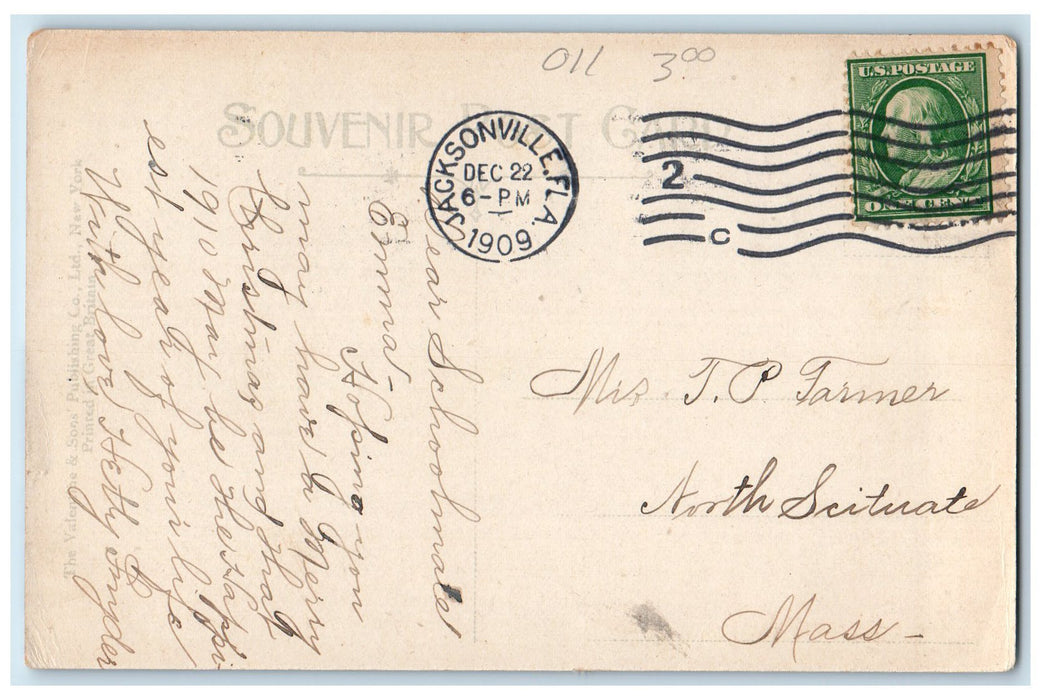 011 3⁰⁰
U.S. POSTAGE
ONE CENT
SOUVENIR POST CARD
JACKSONVILLE, FLA.
DEC 22
6-PM
1909
2
C
Dear Schoolmate
Emma-
Hoping you
may have a Merry
Christmas and that
1910 May be the Happi
est year of your life
With love, Hetty Snyder
The Valentine & Sons' Publishing Co., Ltd., New York
Printed in Great Britain
Mrs. T. P. Farmer
North Scituate
Mass-